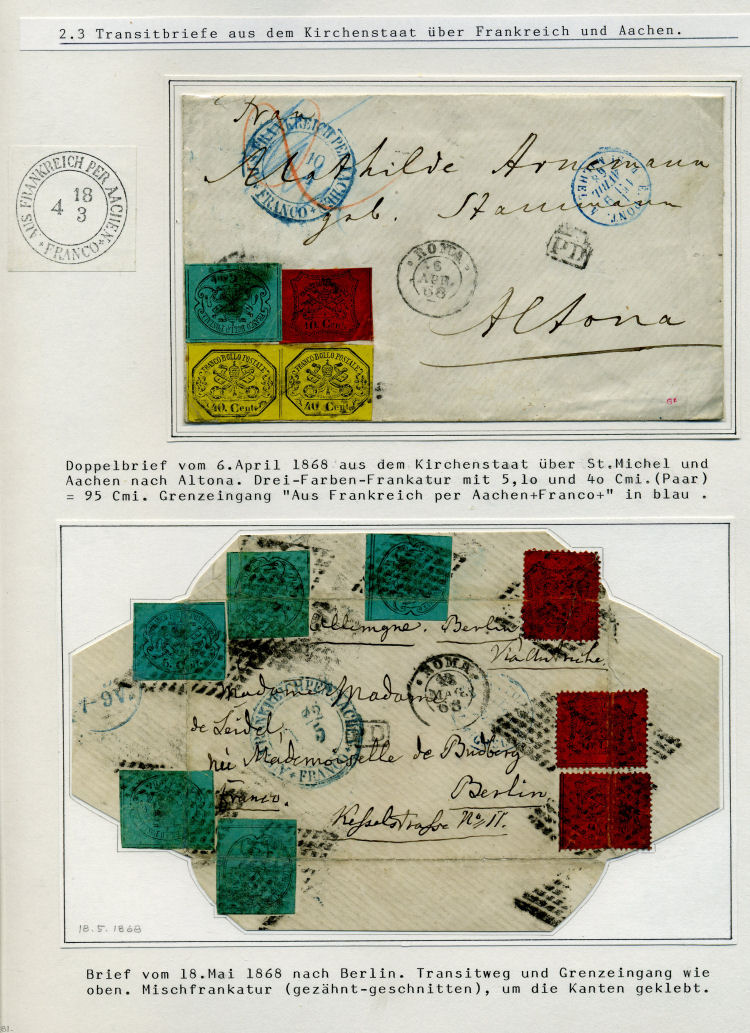 2.3 Transitbriefe aus dem Kirchenstaat über Frankreich und Aachen.
AUS FRANKREICH PER AACHEN
18
4 3
+FRANCO+
FRANKREICH PER AACHEN
10
4
+FRANCO+
Frau
Mathilde Arnemann
geb. Stammann
Altona
ROMA
6
APR
68
PD
10 Cent
FRANCO BOLLO POSTALE
40 Cent
FRANCO BOLLO POSTALE
40 Cent
Doppelbrief vom 6.April 1868 aus dem Kirchenstaat über St.Michel und
Aachen nach Altona. Drei-Farben-Frankatur mit 5,lo und 4o Cmi.(Paar)
= 95 Cmi. Grenzeingang "Aus Frankreich per Aachen+Franco+" in blau .
Allemagne. Berlin
Via Autriche.
ROMA
18
MAG
68
Madame Madame
de Leidel,
née Mademoiselle de Budberg
Franco. Berlin.
Kesselstrasse No 11.
FRANKREICH PER AACHEN
+FRANCO+
18.5.1868
Brief vom 18.Mai 1868 nach Berlin. Transitweg und Grenzeingang wie
oben. Mischfrankatur (gezähnt-geschnitten), um die Kanten geklebt.